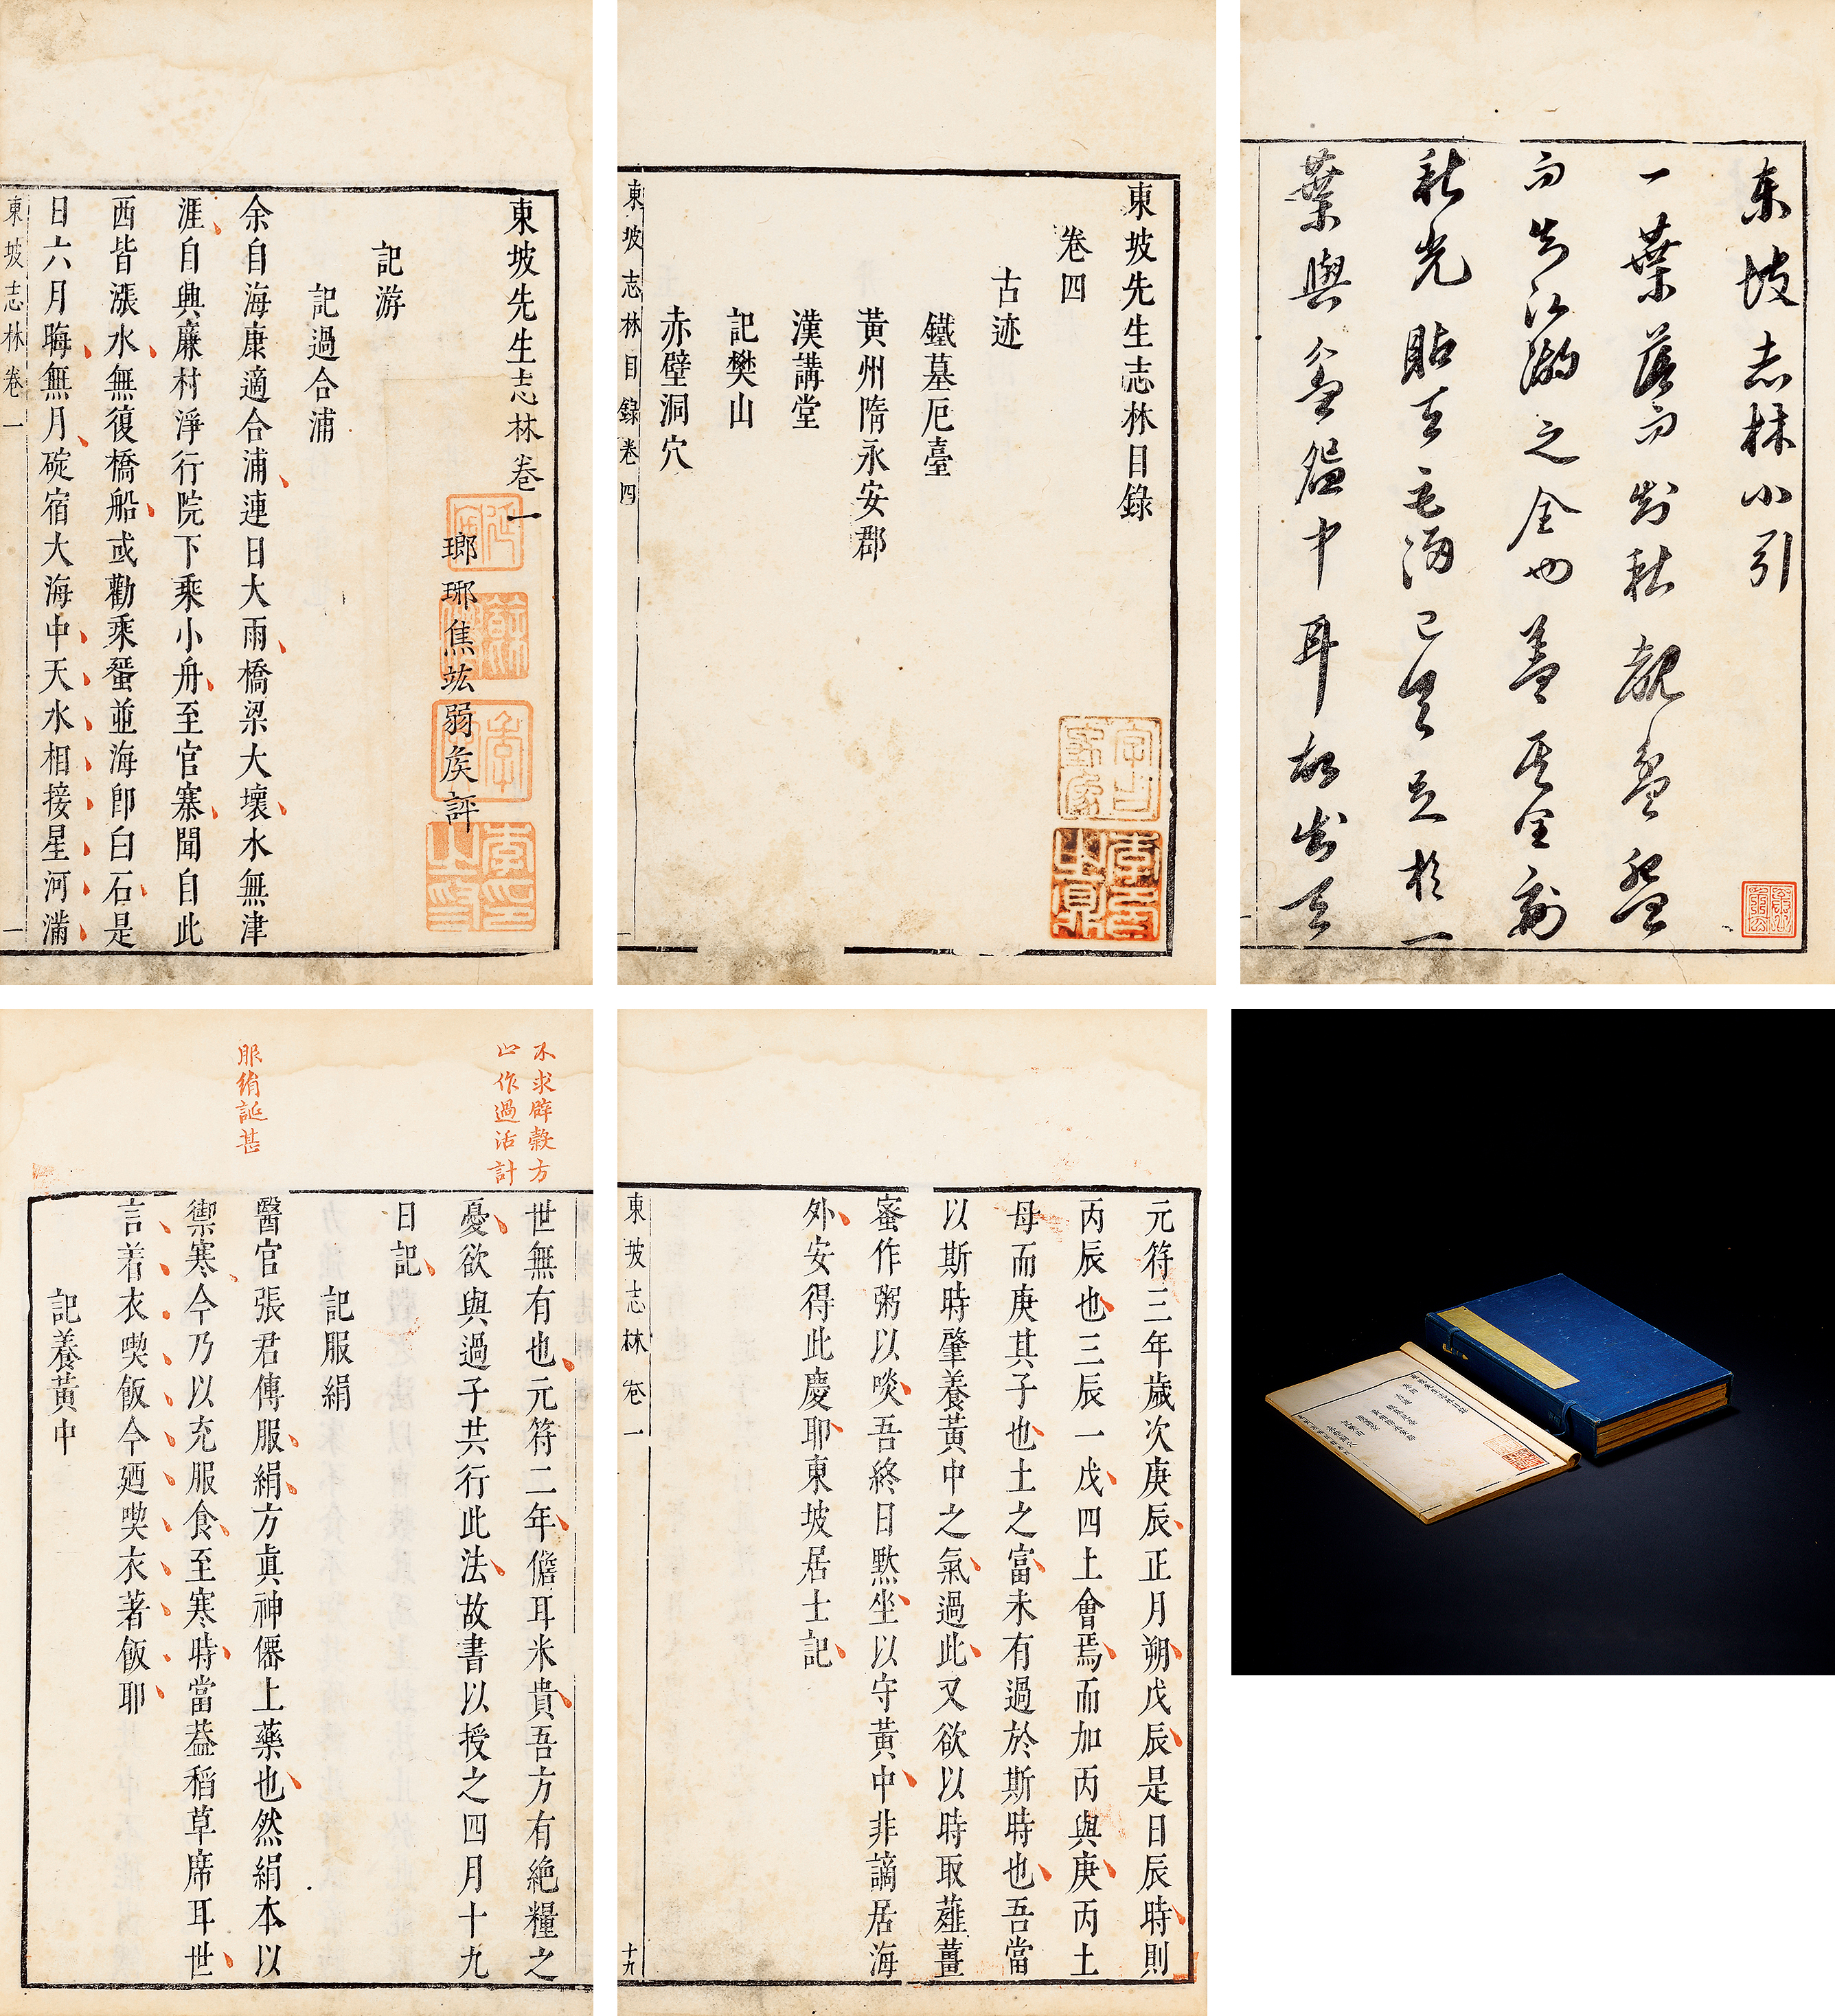 東坡志林小引
一葉落而知秋覩盈盌
而知江湖之全也蓋其全副
秋光貼天毛海已具足於一
葉與盆盎中耳故出其
東坡先生志林目錄
卷四
古迹
鐵墓厄臺
黃州隋永安郡
漢講堂
記樊山
赤壁洞穴
東坡志林目錄卷四
一
東坡先生志林卷一
瑯琊焦竑弱侯評
記游
記過合浦
余自海康適合浦連日大雨橋梁大壞水無津
涯自興廉村淨行院下乘小舟至官寨聞自此
西皆漲水無復橋船或勸乘蜑並海卽白石是
日六月晦無月碇宿大海中天水相接星河滿
東坡志林卷一
一
元符三年歲次庚辰正月朔戊辰是日辰時則
丙辰也三辰一戊四土會焉而加丙與庚丙土
母而庚其子也土之富未有過於斯時也吾當
以斯時肇養黃中之氣過此又欲以時取薤薑
蜜作粥以啖吾終日默坐以守黃中非謫居海
外安得此慶耶東坡居士記
東坡志林卷一
十九
不求辟穀方
止作過活計
服絹誕甚
世無有也元符二年儋耳米貴吾方有絕糧之
憂欲與過子共行此法故書以授之四月十九
日記
記服絹
醫官張君傳服絹方真神僊上藥也然絹本以
禦寒今乃以充服食至寒時當葢稻草席耳世
言着衣喫飯今廼喫衣著飯耶
記養黃中